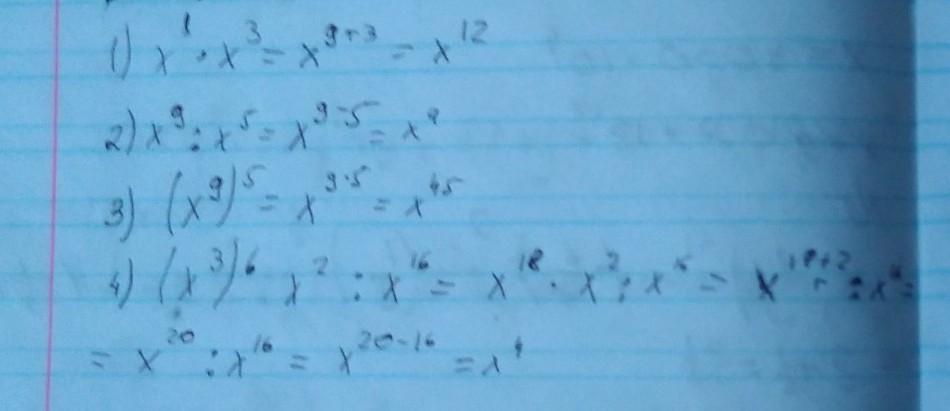 1) x⁹ · x³ = x⁹⁺³ = x¹²
2) x⁹ : x⁵ = x⁹⁻⁵ = x⁴
3) (x⁹)⁵ = x⁹·⁵ = x⁴⁵
4) (x³)⁶ x² : x¹⁶ = x¹⁸ · x² : x = x¹⁸⁺² : x =
= x²⁰ : x¹⁶ = x²⁰⁻¹⁶ = x⁴